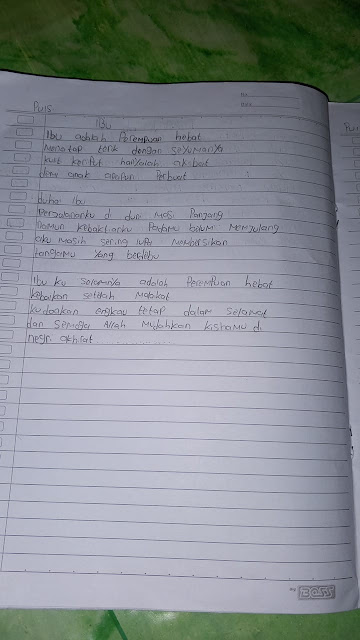 No:
Date:
Puisi
Ibu
Ibu adalah Perempuan hebat
Menatap terik dengan senyumanya
kulit keriput hanyalah akibat
demi anak apapun Perbuat
duhai Ibu
Perjalananku di duni masi Panjang
Namun kebaktianku Padamu belum menjulang
aku masih sering lupa membersikan
tanganmu yang berdebu
Ibu ku selamanya adalah Perempuan hebat
kebaikan setelah malaikat
kudoakan engkau tetap dalam selamat
dan semoga Allah mudahkan kisahmu di
negri akhirat
BOSS